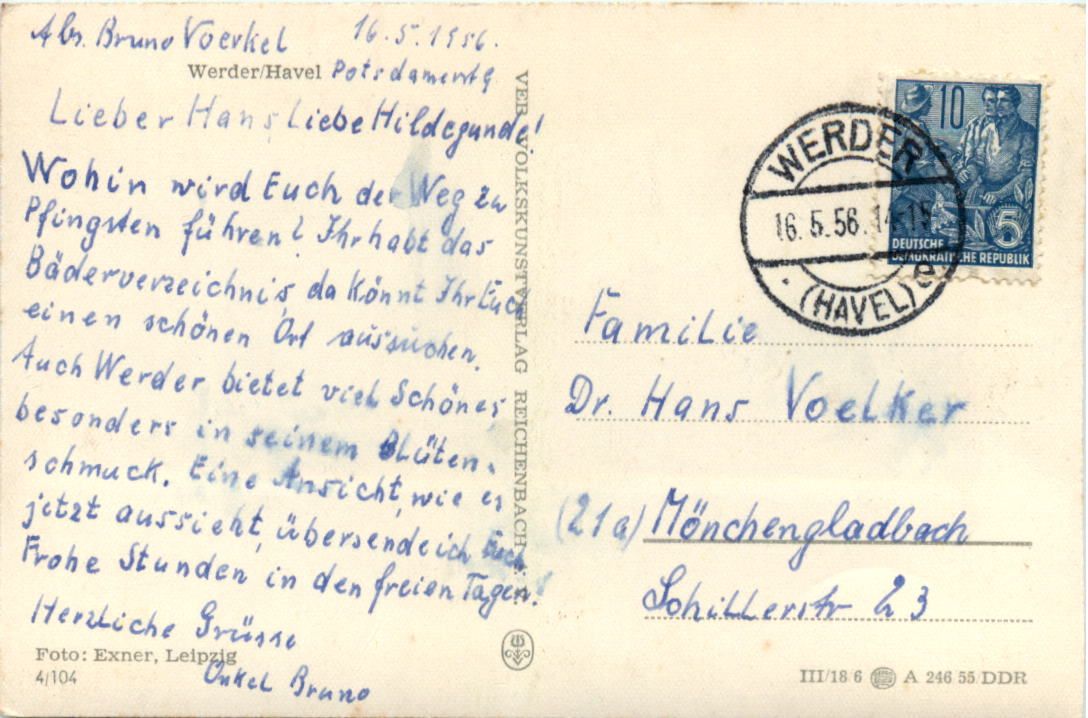 Abs. Bruno Voerkel 16.5.1956.
Werder/Havel Potsdamerstr 9
Lieber Hans Liebe Hildegunde!
Wohin wird Euch der Weg zu
Pfingsten führen? Ihr habt das
Bäderverzeichnis, da könnt Ihr Euch
einen schönen Ort aussuchen.
Auch Werder bietet viel Schönes,
besonders in seinem Blüten-
schmuck. Eine Ansicht, wie es
jetzt aussieht, übersende ich Euch
Frohe Stunden in den freien Tagen!
Herzliche Grüsse
Onkel Bruno
Foto: Exner, Leipzig
4/104
VEB VOLKSKUNSTVERLAG REICHENBACH
10
5
DEUTSCHE
DEMOKRATISCHE REPUBLIK
WERDER
16.5.56.14-15
(HAVEL) e
Familie
Dr. Hans Voelker
(21a) Mönchengladbach
Schillerstr 23
III/18/6 A 246 55/DDR